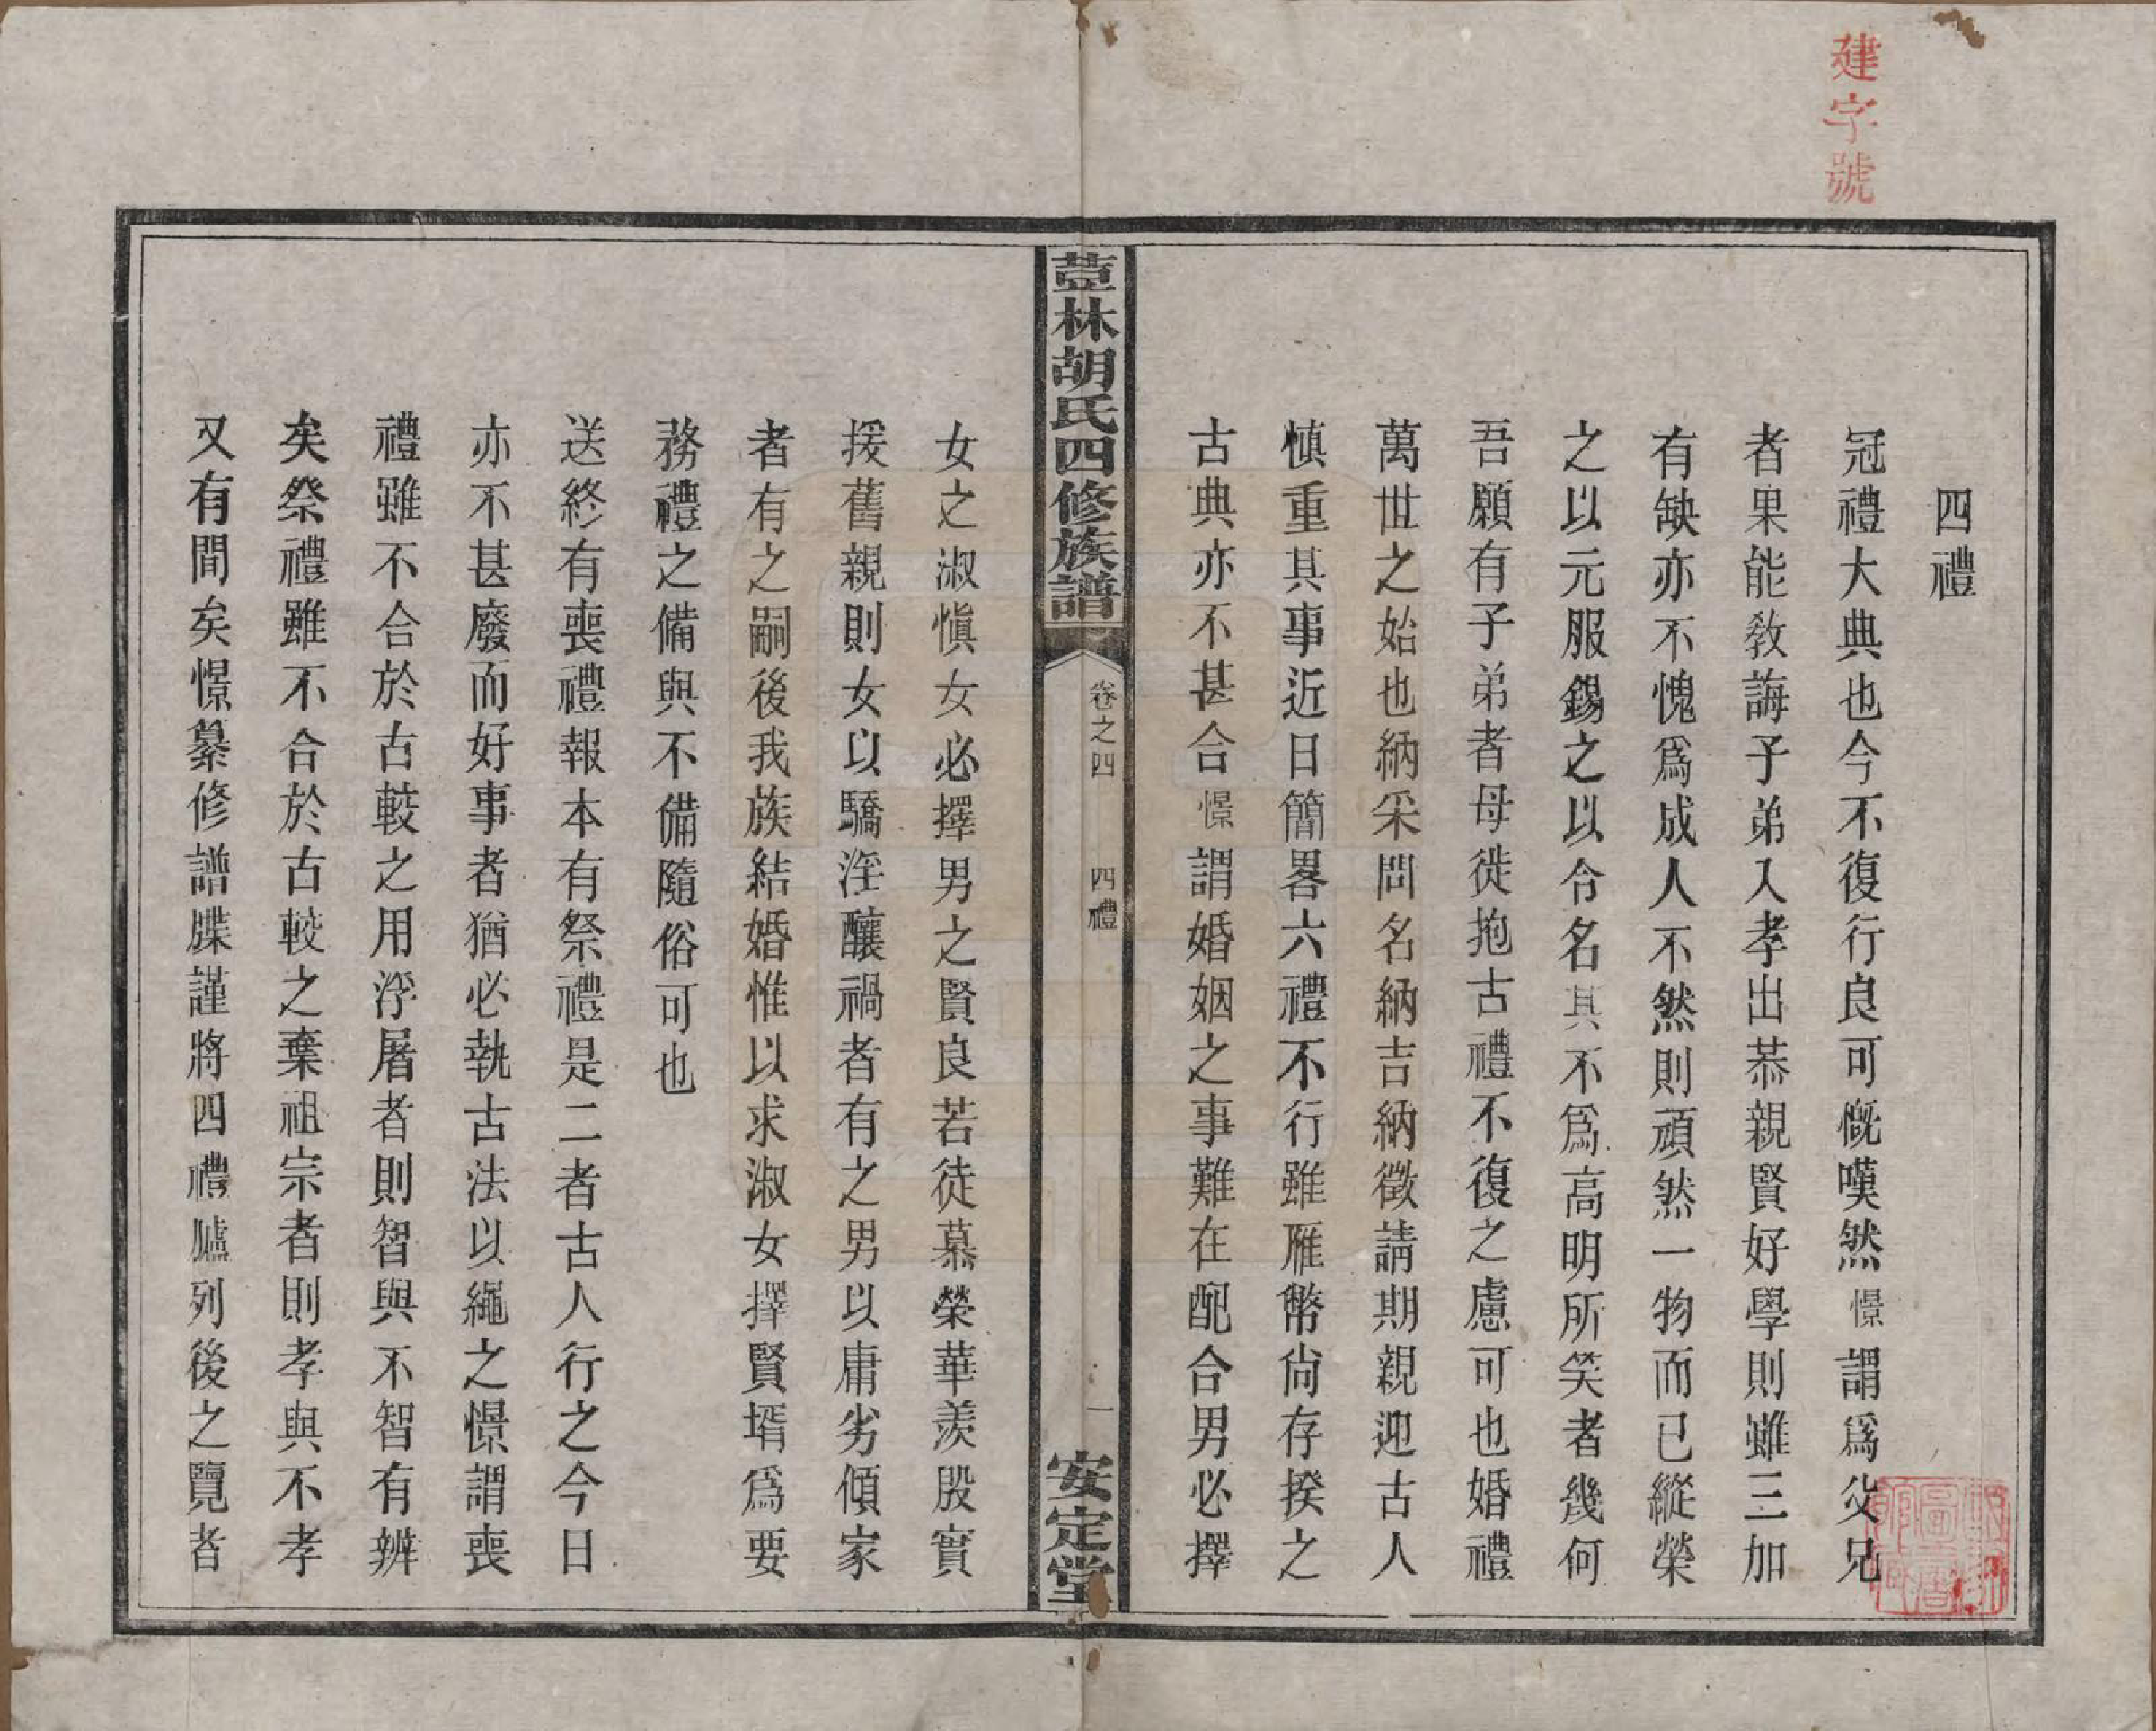 建字號
四禮
冠禮大典也今不復行良可慨嘆然憬謂爲父兄
者果能敎誨子弟入孝出恭親賢好學則雖三加
有缺亦不愧爲成人不然則頑然一物而已縱榮
之以元服錫之以令名其不爲高明所笑者幾何
吾願有子弟者毋徙抱古禮不復之慮可也婚禮
萬世之始也納采問名納吉納徵請期親迎古人
慎重其事近日簡畧六禮不行雖雁幣尙存揆之
古典亦不甚合憬謂婚姻之事難在配合男必擇
荳林胡氏四修族譜
卷之四
四禮
一
安定堂
女之淑愼女必擇男之賢良若徒慕榮華羨殷實
援舊親則女以驕淫釀禍者有之男以庸劣傾家
者有之嗣後我族結婚惟以求淑女擇賢壻爲要
務禮之備與不備隨俗可也
送終有喪禮報本有祭禮是二者古人行之今日
亦不甚廢而好事者猶必執古法以繩之憬謂喪
禮雖不合於古較之用浮屠者則智與不智有辨
矣祭禮雖不合於古較之棄祖宗者則孝與不孝
又有間矣憬纂修譜牒謹將四禮臚列後之覽者